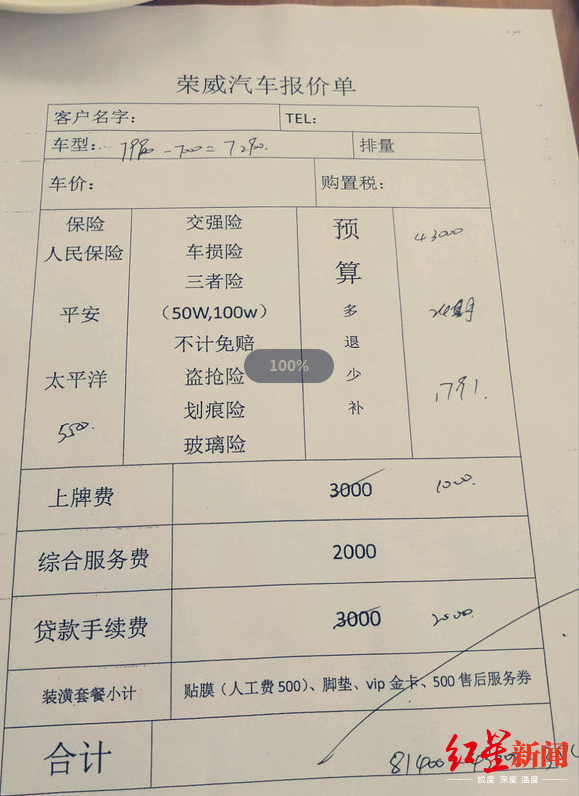 荣威汽车报价单
客户名字： TEL：
车型： 排量
车价： 购置税：
保险 交强险 预 43000
人民保险 车损险 算
三者险
平安 （50W,100w） 多
不计免赔 退
100%
太平洋 盗抢险 少 1791.
划痕险 补
5500.
玻璃险
上牌费 3000 1000.
综合服务费 2000
贷款手续费 3000 2000.
装潢套餐小计 贴膜（人工费 500）、脚垫、vip 金卡、500 售后服务券
合计 81400
红星新闻
锐度 深度 温度